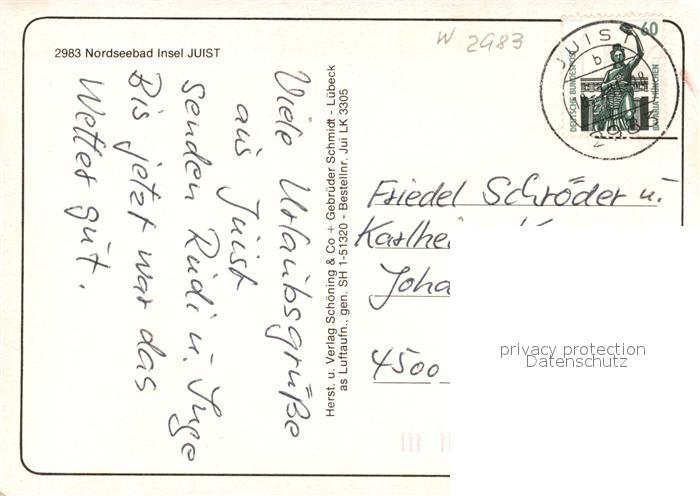 2983 Nordseebad Insel JUIST
W 2983
Viele Urlaubsgrüße
aus Juist
senden Rudi u. Inge
Bis jetzt war das
Wetter gut.
Herst. u. Verlag Schöning & Co + Gebrüder Schmidt - Lübeck
as Luftaufn., gen. SH 1-51320 - Bestellnr. Jui LK 3305
JUIST
b
60
DEUTSCHE BUNDESPOST
BAVARIA MÜNCHEN
Friedel Schröder u.
4500
privacy protection
Datenschutz